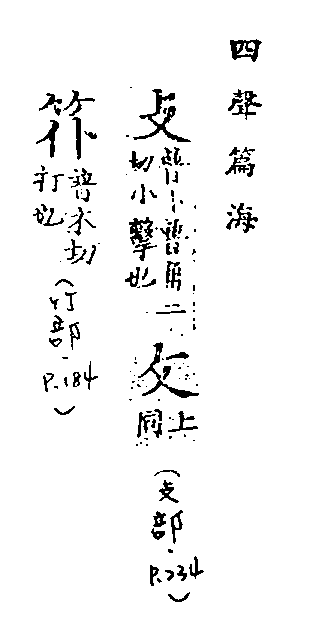 四聲篇海
攴普卜普角二切小擊也
攵上同
(攴部.P.234)
普木切打也
(竹部.P.184)